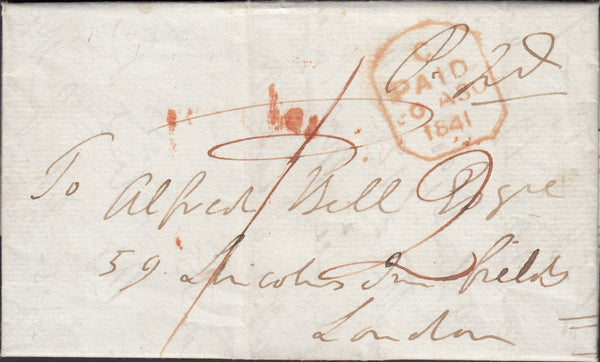 Paid
C
PAID
1841
To Alfred Bell Esqre
59 Lincolns Inn fields
London